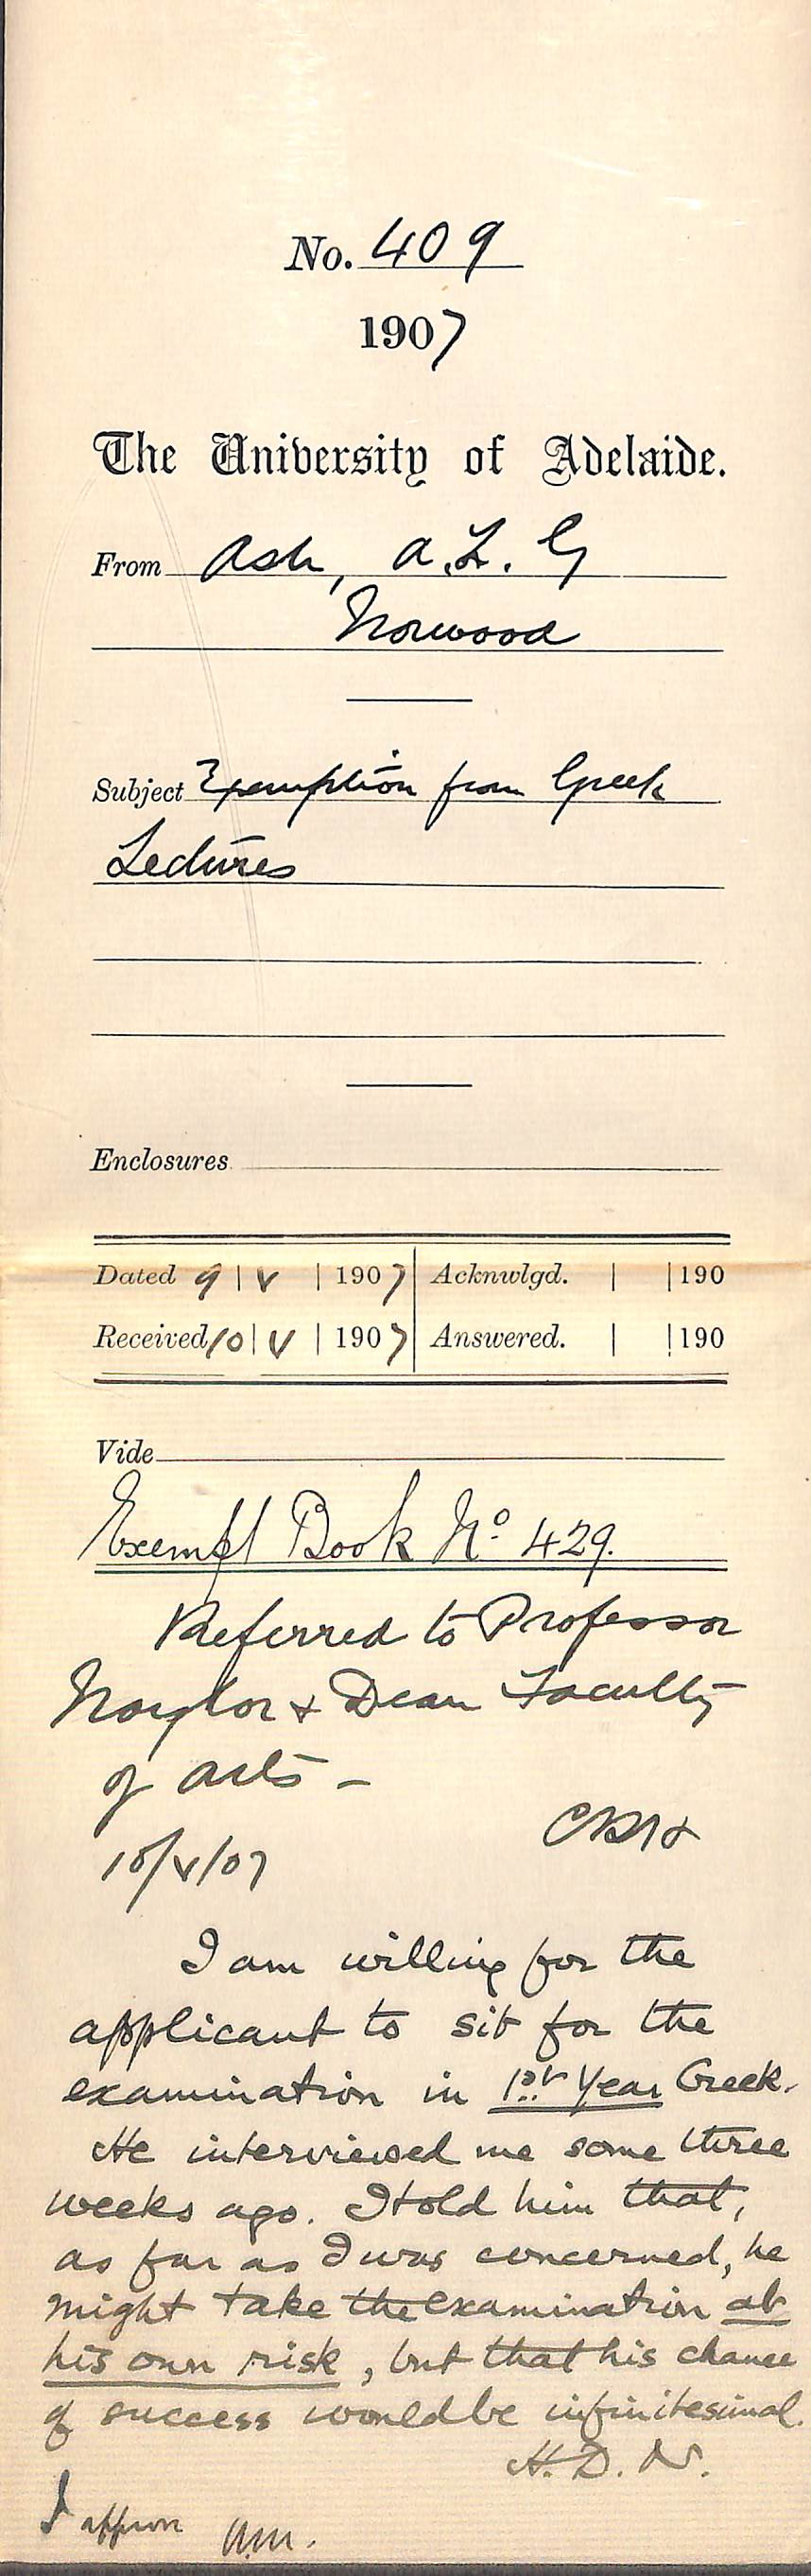 No. 409
1907
The University of Adelaide.
From Ash, A.L.G
Norwood
Subject Exemption from Greek
Lectures
Enclosures
Dated 9 | V | 1907 Acknwlgd. | | 190
Received 10 | V | 1907 Answered. | | 190
Vide
Exempt Book No 429.
Referred to Professor
Naylor & Dean Faculty
of Arts –
10/V/07
I am willing for the
applicant to sit for the
examination in 1st Year Greek.
He interviewed me some three
weeks ago. I told him that,
as far as I was concerned, he
might take the examination at
his own risk, but that his chance
of success would be infinitesimal.
H. D. N.
I approve W.M.